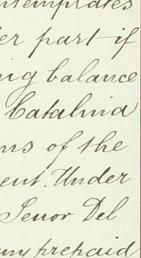 ntemplates
er part if
ing balance
Catalina
ns of the
ent. Under
Senor Del
my prepaid